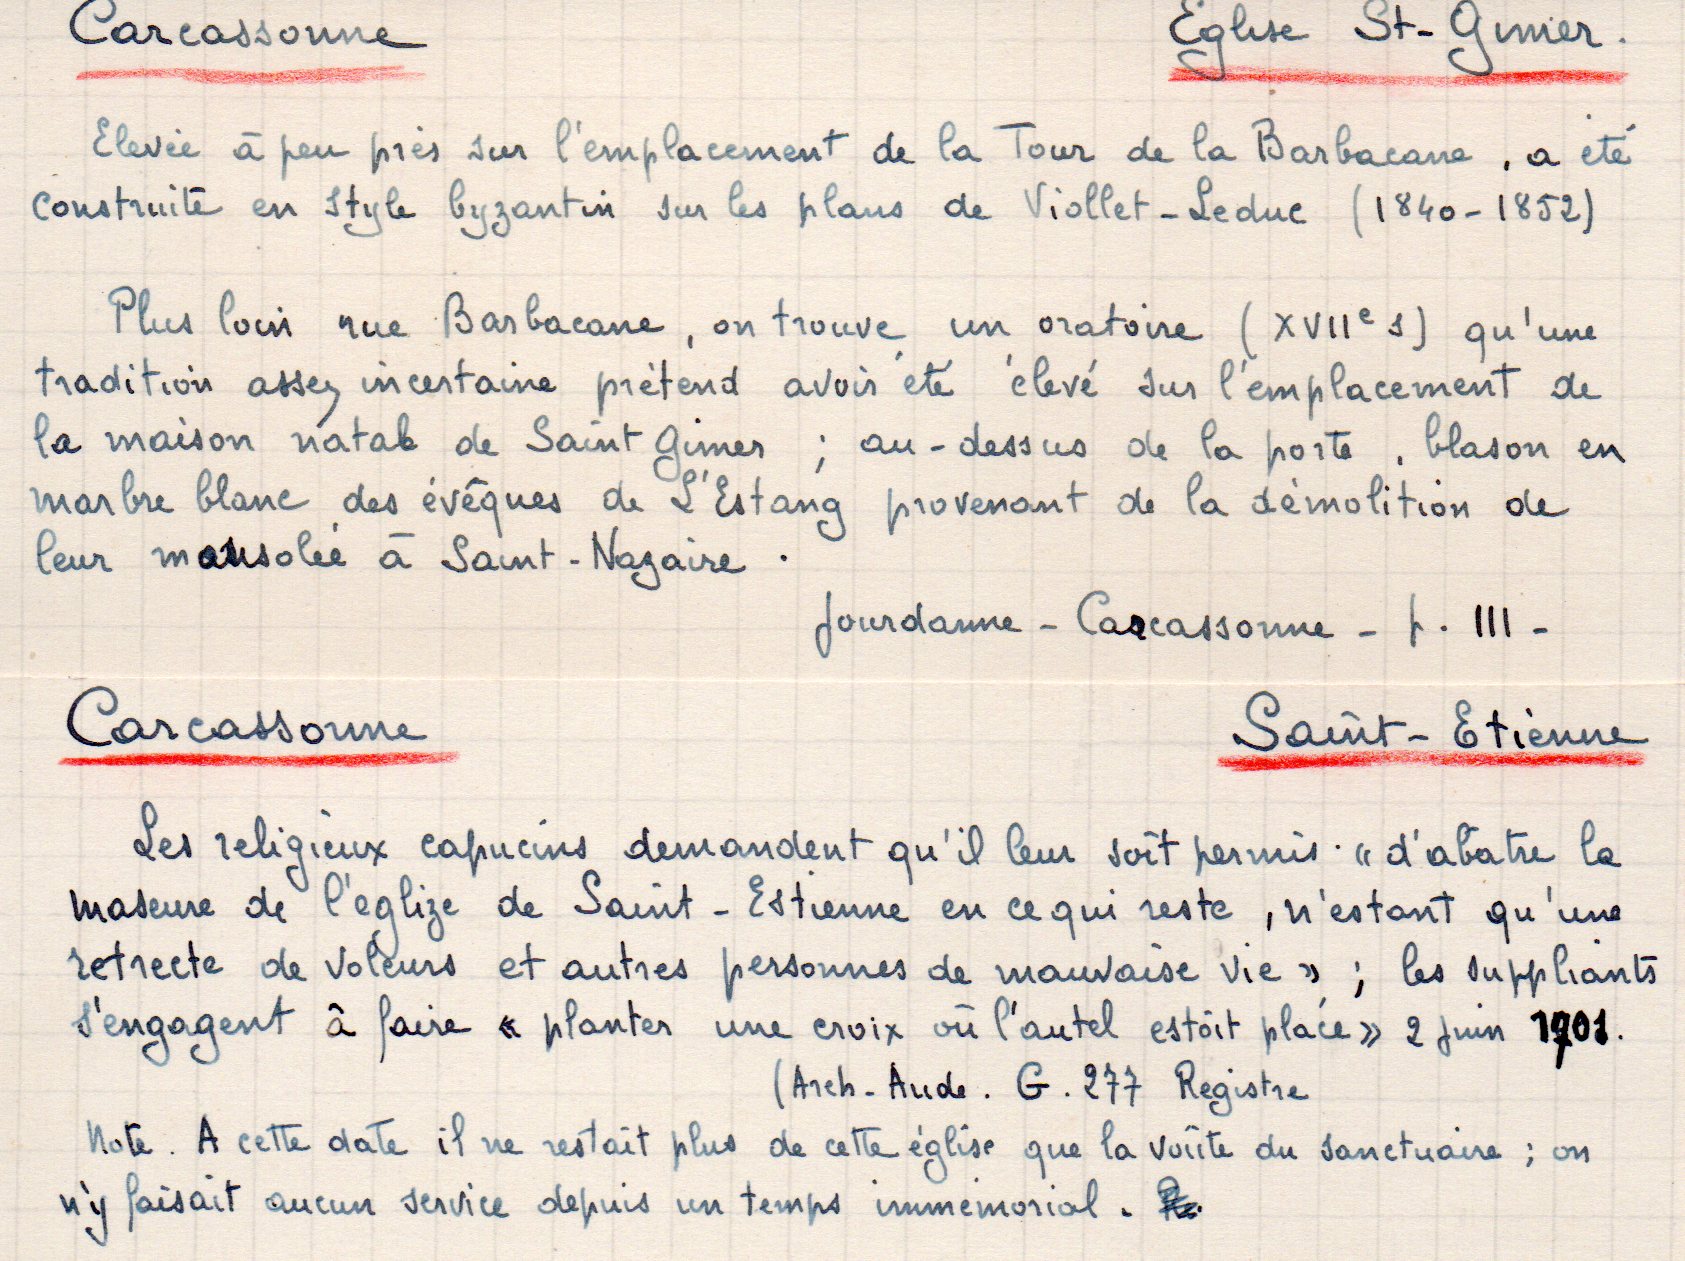 Carcassonne Eglise St-Gimer.
Elevée à peu près sur l'emplacement de la Tour de la Barbacane, a été
construite en style byzantin sur les plans de Viollet-Leduc (1840-1852)
Plus loin rue Barbacane, on trouve un oratoire (XVIIe s) qu'une
tradition assez incertaine prétend avoir été élevé sur l'emplacement de
la maison natale de Saint Gimer ; au-dessus de la porte, blason en
marbre blanc des évêques de L'Estang provenant de la démolition de
leur mausolée à Saint-Nazaire.
Jourdanne - Carcassonne - p. 111 -
Carcassonne Saint-Etienne
Les religieux capucins demandent qu'il leur soit permis "d'abatre la
masure de l'églize de Saint-Estienne en ce qui reste, n'estant qu'une
retrecte de voleurs et autres personnes de mauvaise vie" ; les suppliants
s'engagent à faire « planter une croix où l'autel estoit placé » 2 juin 1701.
(Arch. Aude. G. 277 Registre
Note. A cette date il ne restait plus de cette église que la voûte du sanctuaire ; on
n'y faisait aucun service depuis un temps immémorial.